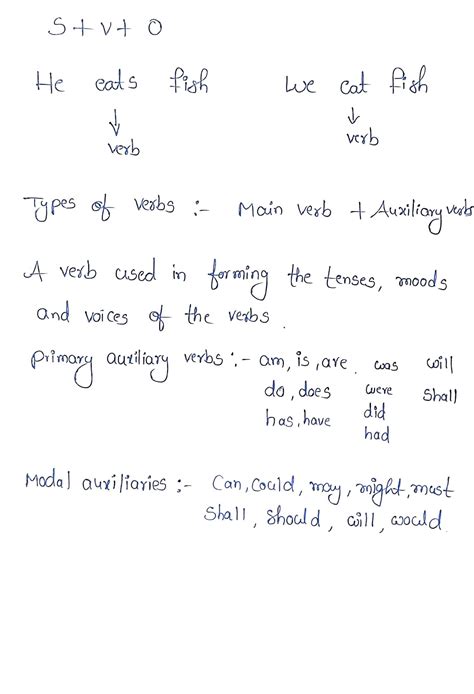 S + v + O
He eats fish We eat fish
↓ ↓
verb verb
Types of verbs :- Main verb + Auxiliary verbs
A verb used in forming the tenses, moods
and voices of the verbs.
Primary auxiliary verbs :- am, is, are was will
do, does were shall
has, have did
had
Modal auxiliaries :- Can, Could, may, might, must
Shall, Should, will, would.